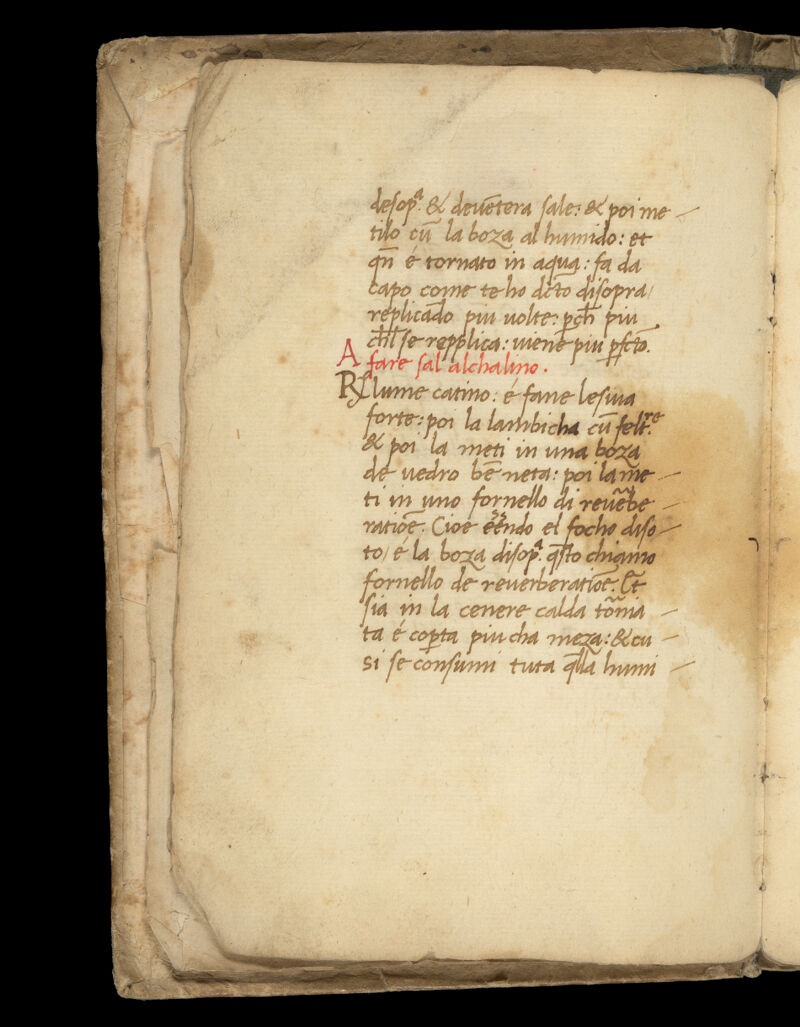 desop̃ª. & deuẽtera sale: & poi me –
tilo cũ la boza al humido: et
qñ é tornato in aqua: fa da
capo come te ho dc̃to disopra/
replicãdo piu uolte: pch̃ piu
ch̃l se repplica: uiene piu pfc̃to.
A fare sal alchalino.
R̃ lume catino: é fane lesiua
forte: poi la lambicha cũ feltre
& poi la meti in una boza
de uedro bẽ neta: poi la me –
ti in uno fornello di reuẽbe –
ratiõe. Cioe ẽẽndo el focho diso –
to/ é la boza disopª. q̃sto chiamo
fornello de reuerberatiõe. Et
sia in la cenere calda –
ta é copta piu cha meza: & cu –
si se consumi tuta q̃lla humi –